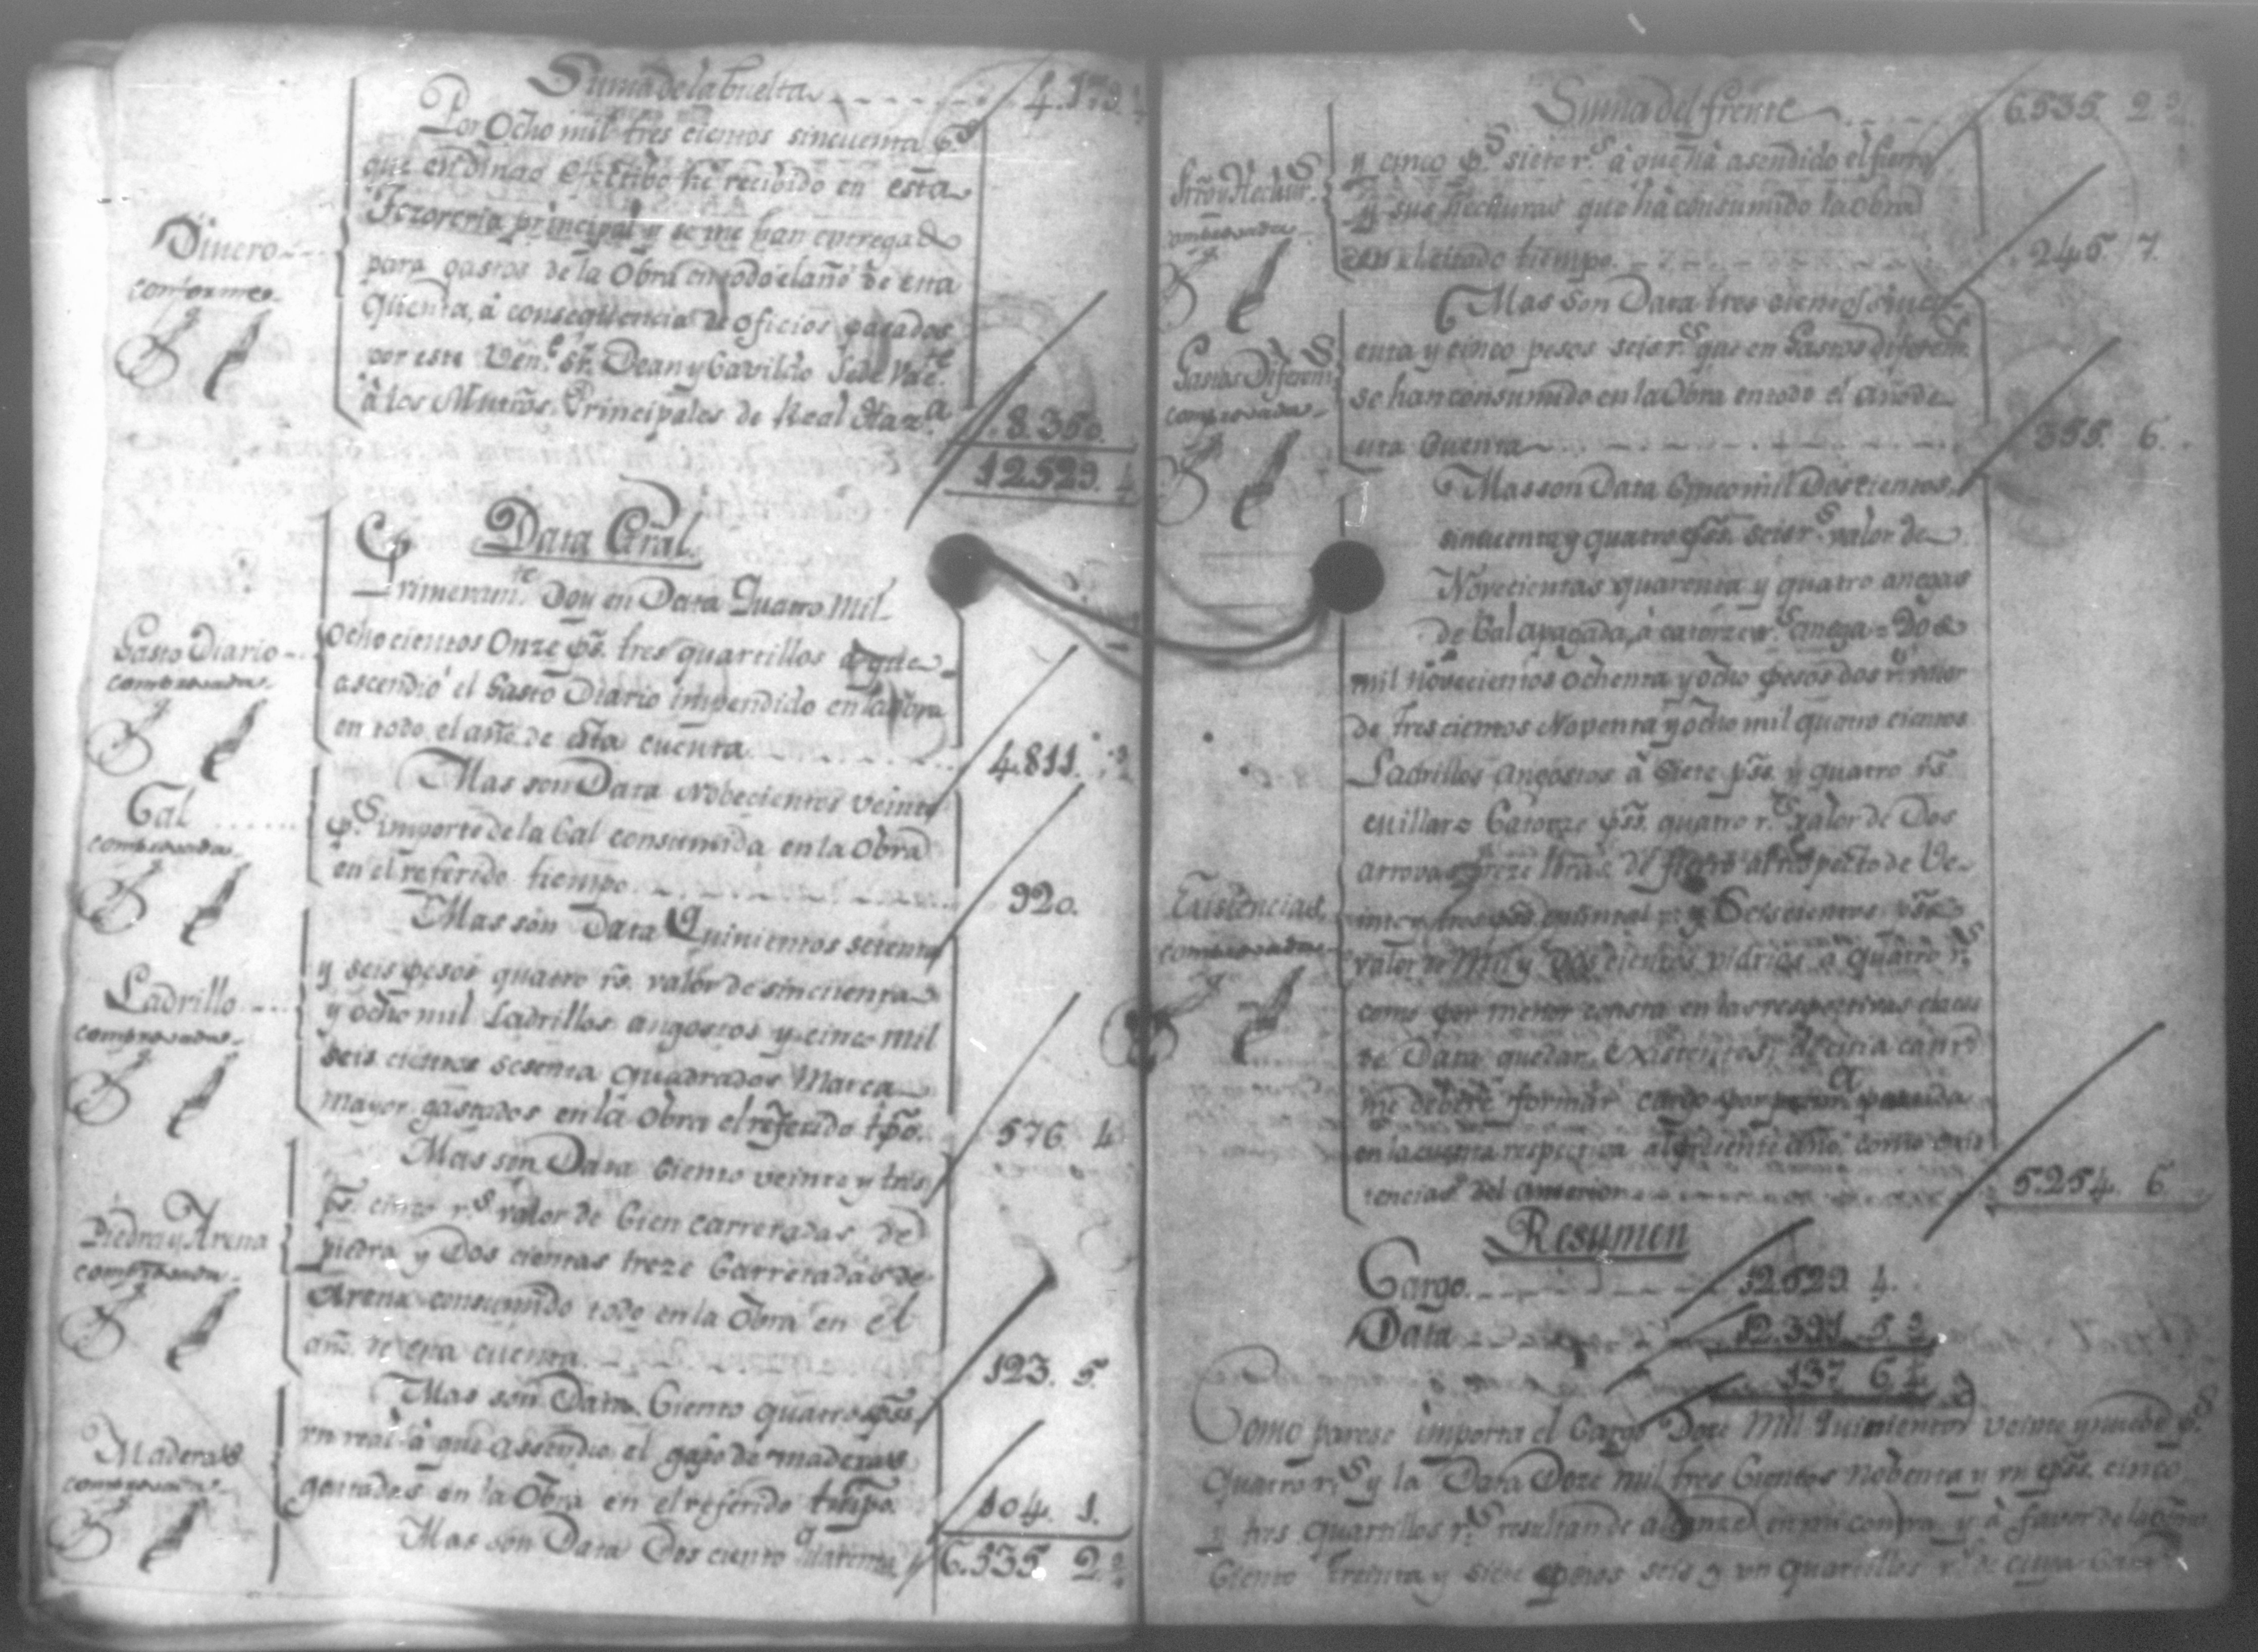 Suma de la buelta 4.179. 4
Por Ocho mil tres cientos sincuenta p.s
que en dinero efectibo he recibido en esta
Tezoreria principal y se me han entregado
Dinero
para gastos de la Obra en todo el año de esta
conforme
Quenta, à conseqüencia de oficios pasados
por este Ven.e S.r Dean y Cavildo Sede Vac.te
à los Mntros Principales de Real Haz.a 8.350.
12.529. 4
Data Gral.
Primeram.te Doy en Data Quatro mil
Gasto Diario
ocho cientos Onze ps. tres quartillos à que
comprovada
ascendió el Gasto Diario impendido en la Obra
en todo el año de esta cuenta 4.811. 3
Mas son Data Nobecientos veinte
Cal
p.s importe de la Cal consumida en la Obra
comprovada
en el referido tiempo 920.
Mas son Data Quinientos setenta
y seis pesos quatro rs. valor de sincuenta
Ladrillo
y ocho mil Ladrillos angostos y cinco mil
comprovada
seis cientos sesenta quadrados Marca
mayor gastados en la Obra el referido tpo. 576 4
Mas son Data Ciento veinte y tres
ps. cinco r.s valor de Cien carretadas de
Piedra y Arena
piedra y Dos cientas treze Carretadas de
comprovada
Arena consumido todo en la Obra en el
año de esta cuenta 123. 5.
Mas son Data Ciento quatro pss.
Maderas
un real à que ascendio el gasto de maderas
comprovada
gastadas en la Obra en el referido tiempo 104. 1.
Mas son Data Dos ciento quarenta 6.535. 2 3
Suma del frente 6535 2 3
y cinco p.s siete r.s à que hà asendido el fierro
y sus Hechuras que hà consumido la obra
en el citado tiempo 245 7.
Mas son Data tres cientos sincu-
enta y cinco pesos seis r.s que en Gastos diferent.s
Gastos Diferent.s
se han consumido en la Obra en todo el año de
comprovada
esta Quenta 355. 6.
Mas son Data Cinco mil Dos cientos
sincuenta y quatro pss. seis r.s valor de
Novecientas quarenta y quatro anegas
de Cal apagada, à catorze r.s anega = Dos
mil novecientos ochenta y ocho pesos dos r.s valor
de tres cientos Noventa y ocho mil quatro cientos
Ladrillos angostos à siete pss. y quatro rs.
millar = Catorze pss. quatro r.s valor de Dos
arrovas treze lbras. de fierro al respecto de Ve-
Existencias
inte y tres pss. quintal = y Seiscientos pss.
comprovada
valor de Mil y Dos cientos vidrios à quatro r.s
como por menor consta en las respectivas clases
de Data quedar existentes, de cuia cant.d
me deberé formar cargo por partida
en la cuenta respectiva al presente año, como exis
tencias del anterior 5.254. 6.
Resumen
Cargo 12529 4.
Data 12.391 5 3
137 6 1
Como parese importa el Cargo Doze Mil Quinientos veinte y nuebe p.s
quatro r.s y la Data Doze mil tres Cientos Nobenta y un pss. cinco
y tres quartillos r.s resultan de alcanze en mi contra y à favor de la
Ciento Treinta y siete pesos seis y un quartillos r.s de cuya Cant.d